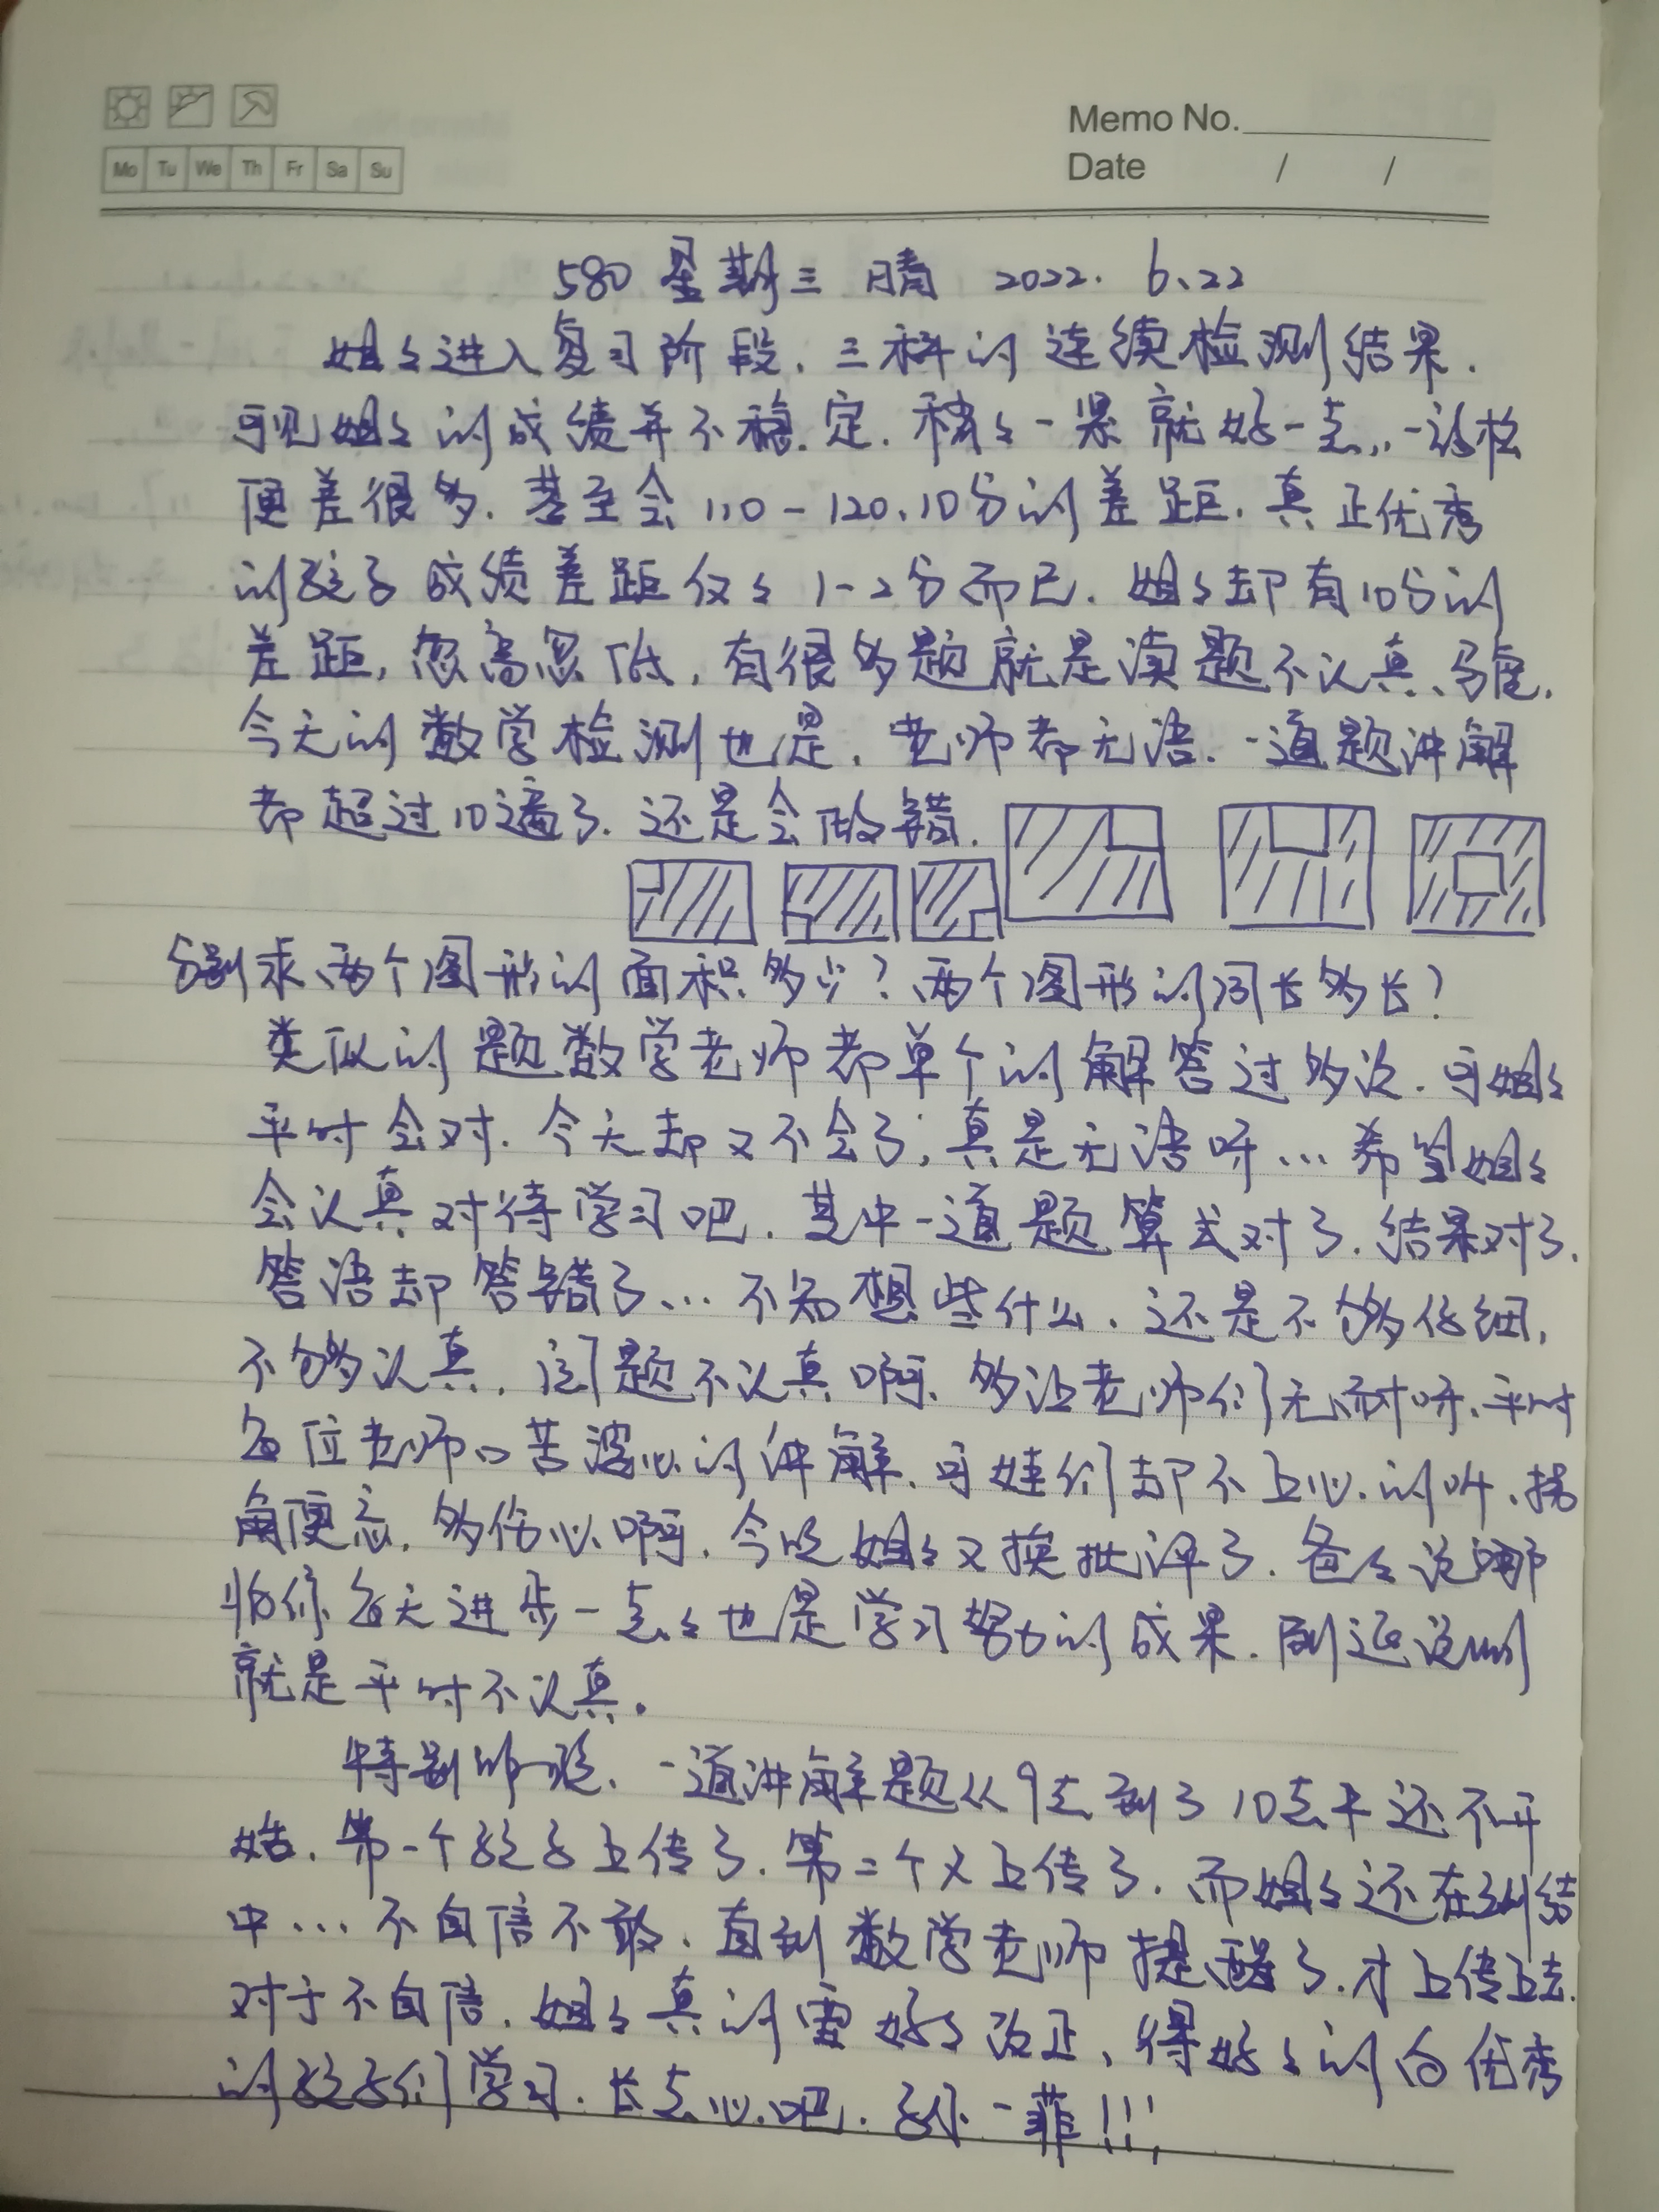 Mo Tu We Th Fr Sa Su
Memo No.
Date / /
580 星期三 晴 2022. 6、22
姐々进入复习阶段. 三科的连续检测结果.
可见姐々的成绩并不稳定. 稍々一 就好一点,. 一放松
便差很多. 甚至会110-120、10分的差距. 真正优秀
的孩子成绩差距仅々1-2分而已. 姐々却有10分的
差距, 忽高忽低, 有很多题就是读题不认真、马虎.
今天的数学检测也是. 老师都无语. 一道题讲解
都超过10遍了. 还是会做错.
分别求、两个图形的面积多少? 两个图形的周长多长?
类似的题数学老师都单个的解答过多次. 可姐々
平时会对. 今天却又不会了, 真是无语呀... 希望姐々
会认真对待学习吧. 其中一道题算式对了. 结果对了.
答语却答错了... 不知想些什么. 还是不够仔细,
不够认真. 问题不认真啊. 多让老师们无 呀. 平时
各位老师口苦婆心的讲解. 可娃们却不上心的听. 拐
角便忘. 多伤心啊. 今晚姐々又挨批评了. 爸々说哪
怕你每天进步一点々也是学习努力的成果. 刚还说的
就是平时不认真.
特别 . 一道讲解题从9点到了10点半还不开
始. 第一个孩子上传了. 第二个又上传了. 而姐々还在纠结
中... 不自信不敢. 直到数学老师提醒了. 才上传上去.
对于不自信. 姐々真的需好々改正、得好々的向优秀
的孩子们学习. 长点心吧. 孙一菲!!!